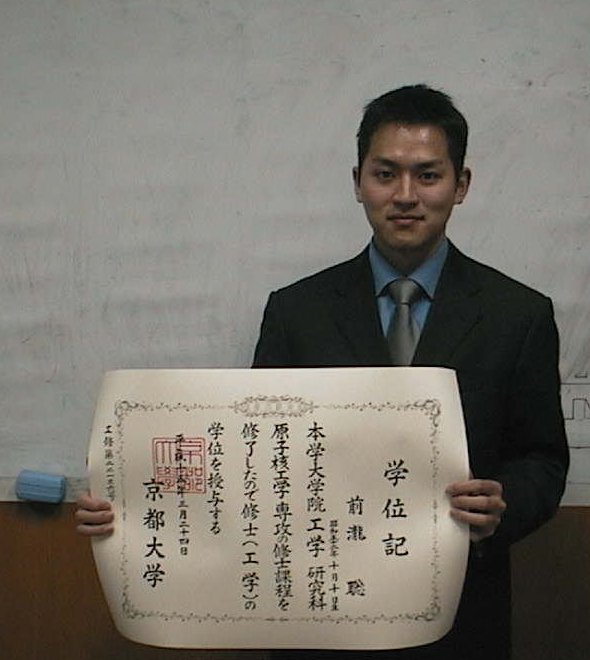 学位記
前瀧 聡
昭和五三年十月十日生
本学大学院工学研究科
原子核工学専攻の修士課程を
修了したので修士(工学)の
学位を授与する
平成十五年三月二十四日
京都大学